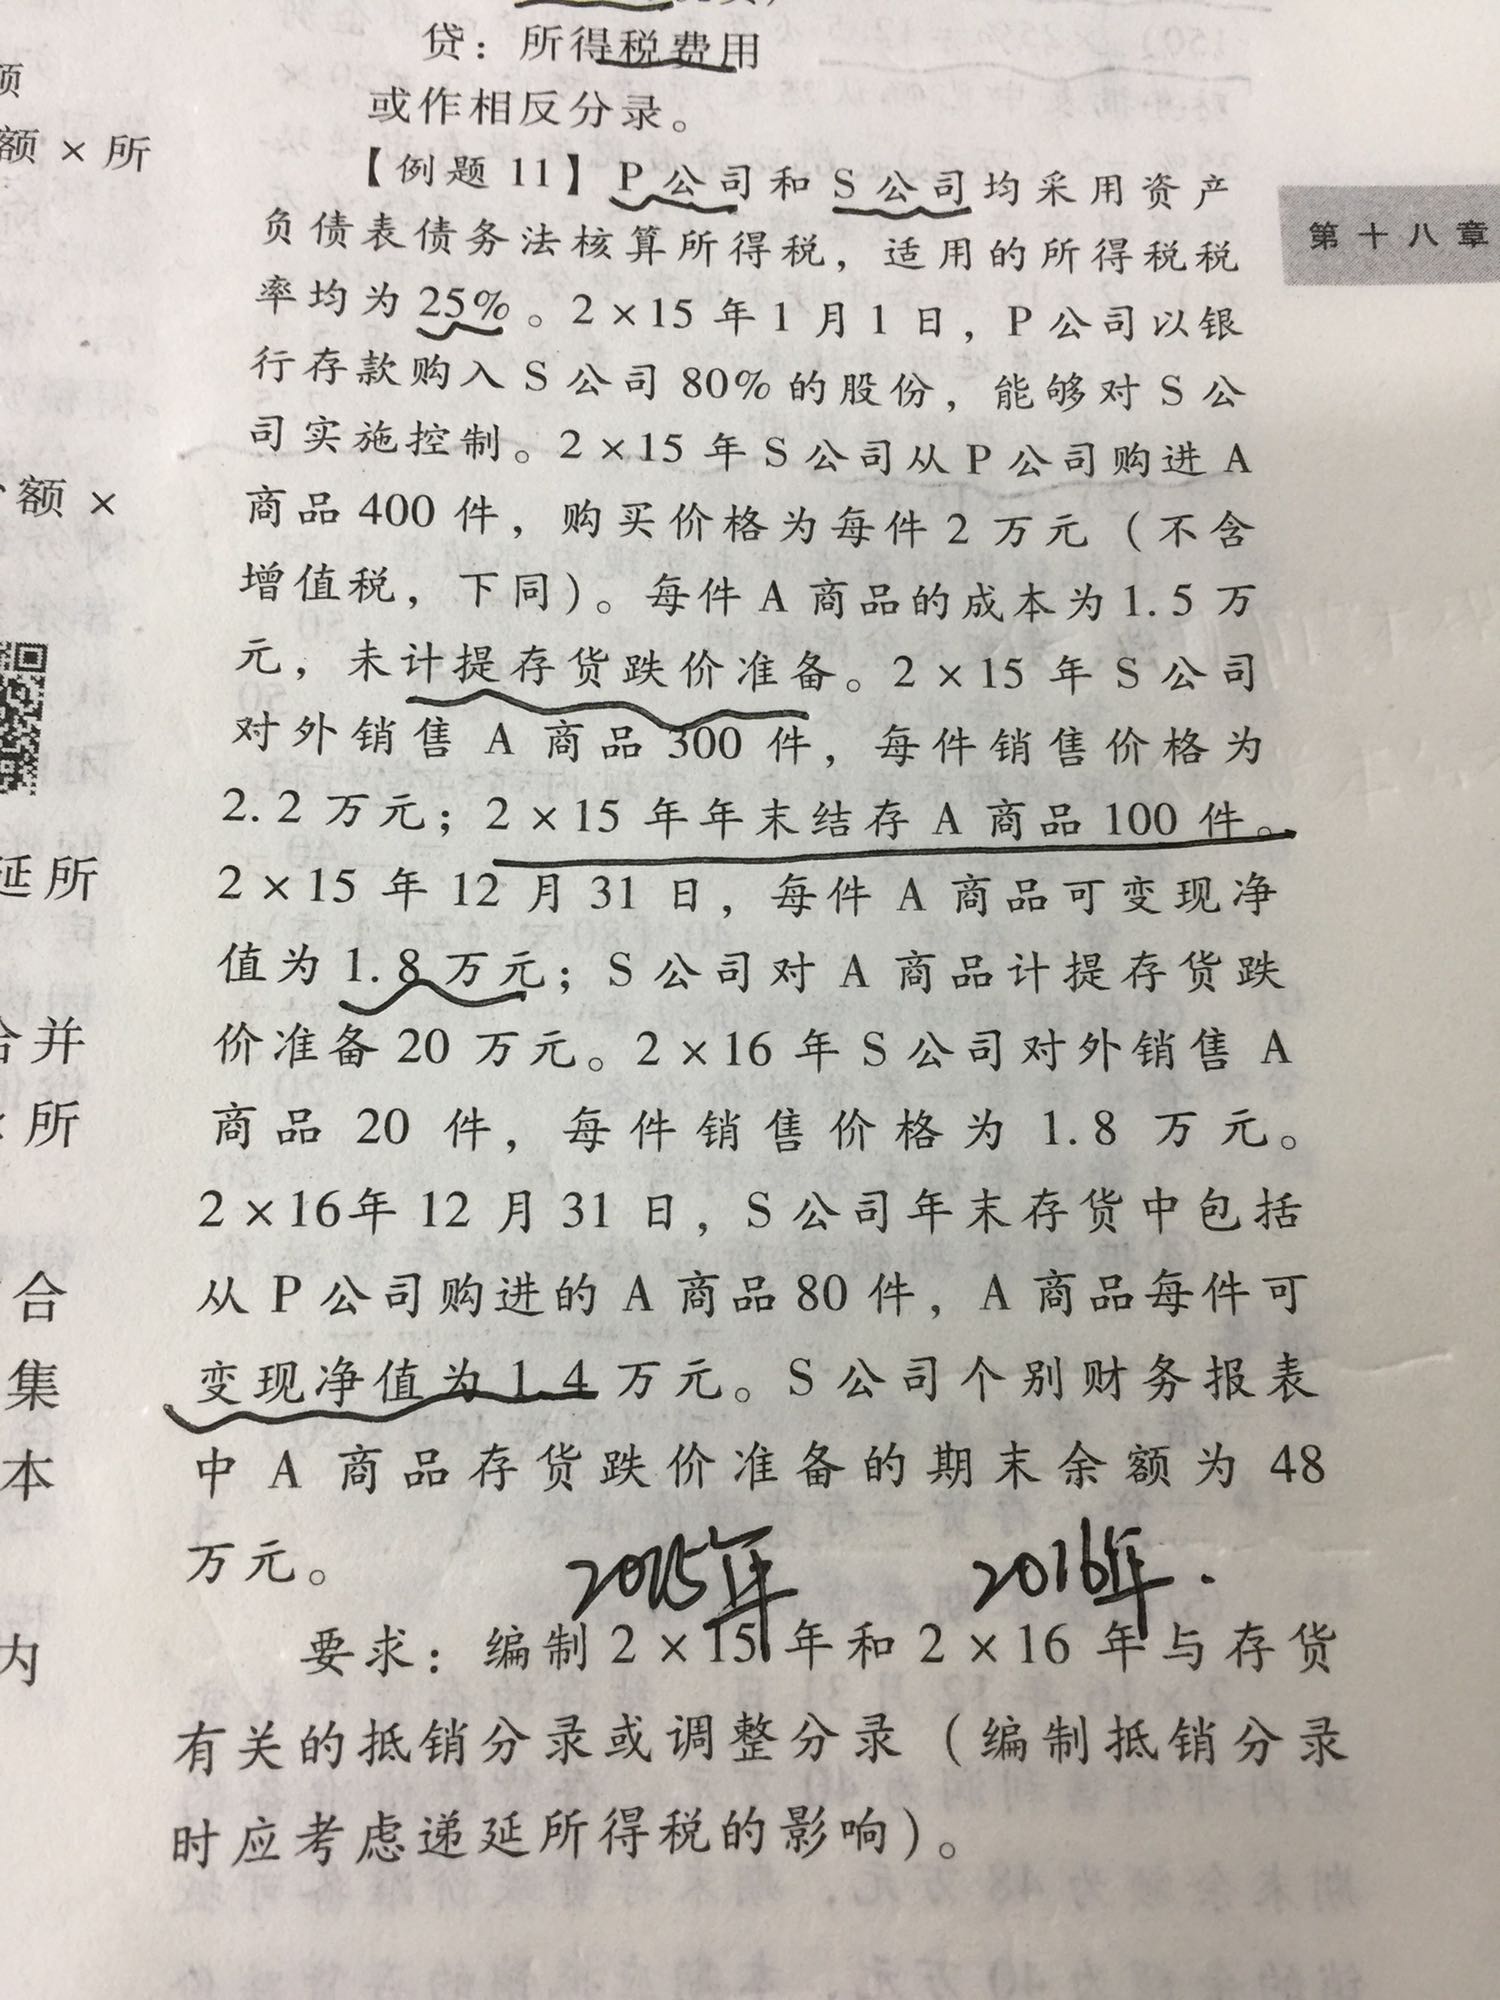 贷：所得税费用
或作相反分录。
额×所
【例题11】P公司和S公司均采用资产
第十八章
负债表债务法核算所得税，适用的所得税税
率均为25%。2×15年1月1日，P公司以银
行存款购入S公司80%的股份，能够对S公
司实施控制。2×15年S公司从P公司购进A
额×
商品400件，购买价格为每件2万元（不含
增值税，下同）。每件A商品的成本为1.5万
元，未计提存货跌价准备。2×15年S公司
对外销售A商品300件，每件销售价格为
2.2万元；2×15年年末结存A商品100件。
延所
2×15年12月31日，每件A商品可变现净
值为1.8万元；S公司对A商品计提存货跌
合并
价准备20万元。2×16年S公司对外销售A
×所
商品20件，每件销售价格为1.8万元。
2×16年12月31日，S公司年末存货中包括
合
从P公司购进的A商品80件，A商品每件可
集
变现净值为1.4万元。S公司个别财务报表
本
中A商品存货跌价准备的期末余额为48
万元。
2015年 2016年.
内
要求：编制2×15年和2×16年与存货
有关的抵销分录或调整分录（编制抵销分录
时应考虑递延所得税的影响）。